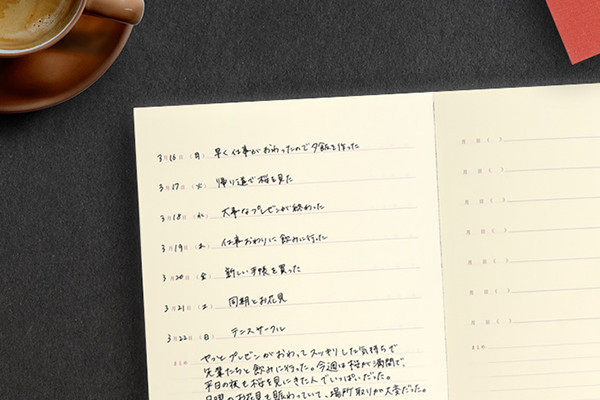 3月16日(月) 早く仕事がおわったので夕飯を作った
3月17日(火) 帰り道で桜を見た
3月18日(水) 大事なプレゼンが終わった
3月19日(木) 仕事おわりに飲みに行った
3月20日(金) 新しい手帳を買った
3月21日(土) 同期とお花見
3月22日(日) テニスサークル
やっとプレゼンがおわってスッキリした気持ちで
先輩たちと飲みに行った。今週は桜が満開で、
平日の夜も桜を見にきた人でいっぱいだった。
日曜のお花見も賑わっていて、場所取りが大変だった。
月 日( )
月 日( )
月 日( )
月 日( )
月 日( )
月 日( )
月 日( )